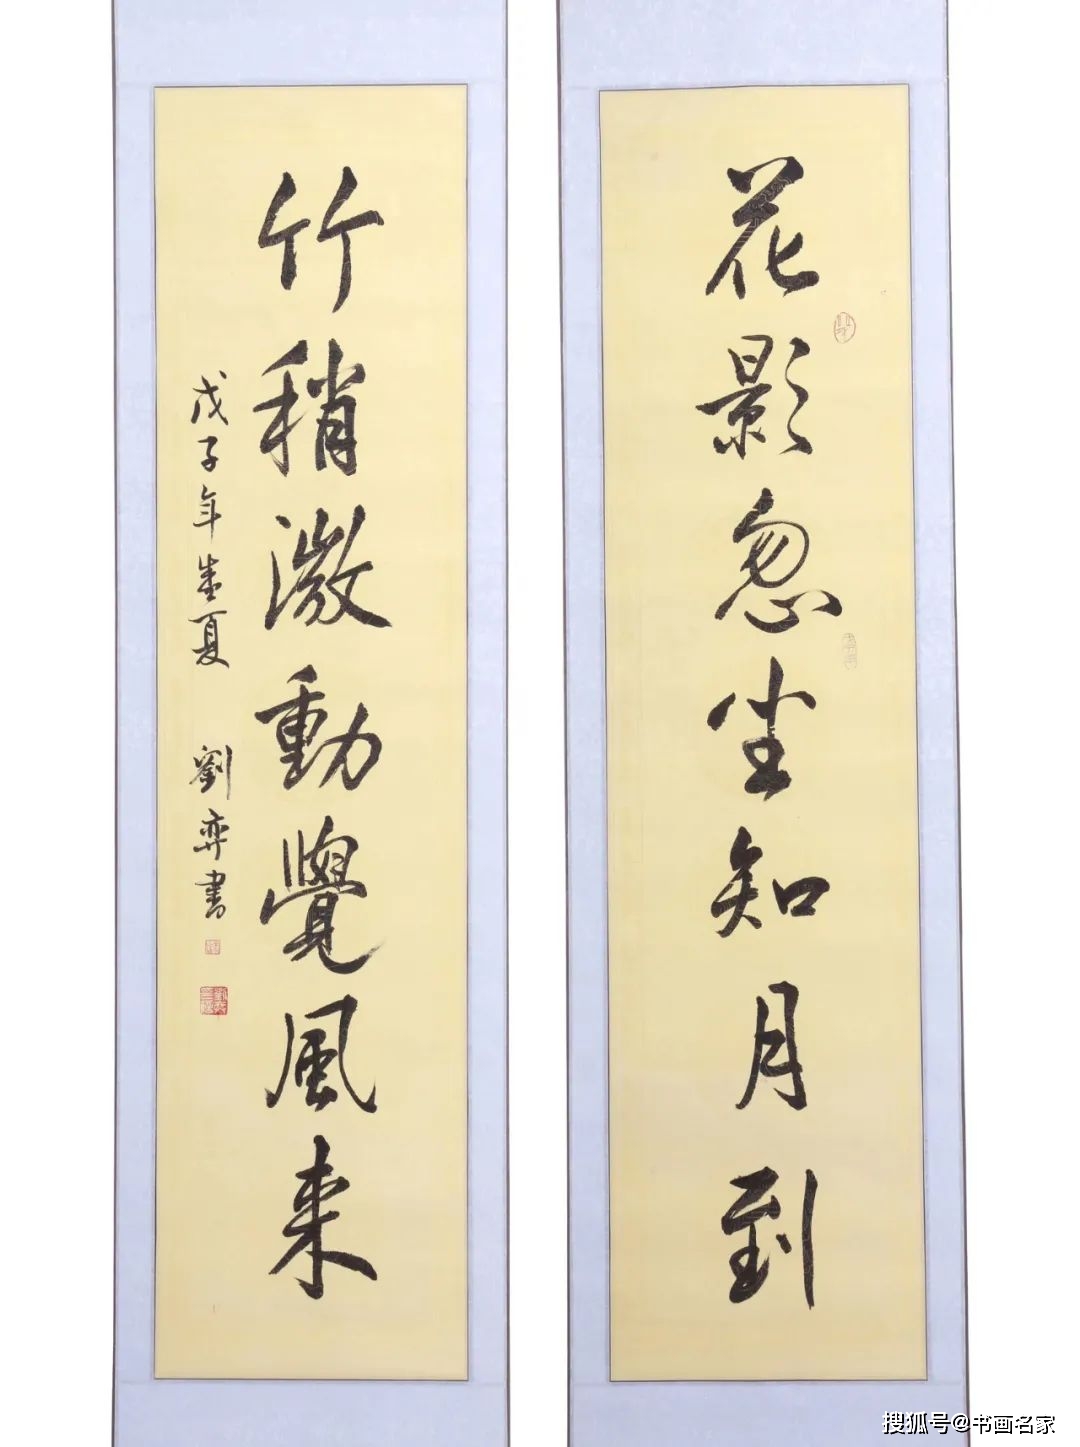 花影忽坐知月到
竹稍微動覺風来
戊子年盛夏 劉弈書
搜狐号@书画名家